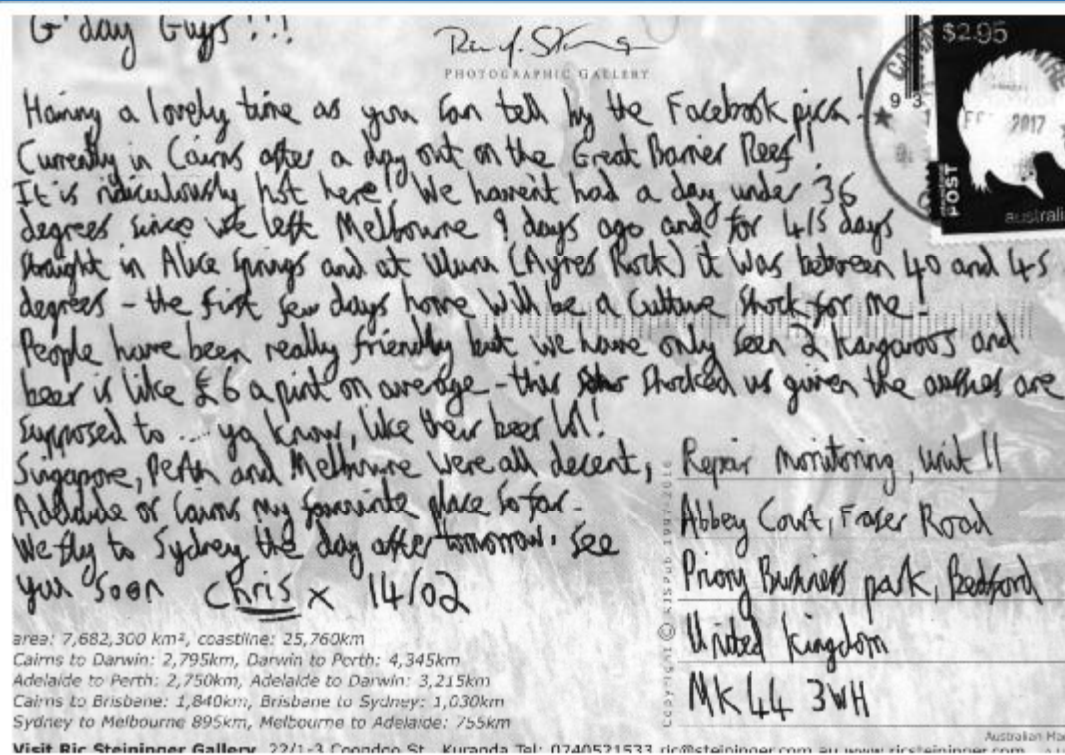 G'day Guys!!!
PHOTOGRAPHIC GALLERY
Having a lovely time as you can tell by the Facebook pics!
Currently in Cairns after a day out on the Great Barrier Reef!
It is ridiculously hot here! We haven't had a day under 36
degrees since we left Melbourne 9 days ago and for 4/5 days
straight in Alice Springs and at Uluru (Ayres Rock) it was between 40 and 45
degrees - the first few days home will be a culture shock for me!
People have been really friendly but we have only seen 2 kangaroos and
beer is like £6 a pint on average - this shocked us given the aussies are
supposed to ... ya know, like their beer lol!
Singapore, Perth and Melbourne were all decent,
Adelaide or Cairns my favourite place so far.
We fly to Sydney the day after tomorrow. See
you soon Chris x 14/02
$2.95
2017
POST
australia
Repair Monitoring, Unit 11
Abbey Court, Fraser Road
Priory Business park, Bedford
United Kingdom
MK44 3WH
copyright © SJSPub 1997-2016
area: 7,682,300 km², coastline: 25,760km
Cairns to Darwin: 2,795km, Darwin to Perth: 4,345km
Adelaide to Perth: 2,750km, Adelaide to Darwin: 3,215km
Cairns to Brisbane: 1,840km, Brisbane to Sydney: 1,030km
Sydney to Melbourne 895km, Melbourne to Adelaide: 755km
Australian Ma
Visit Ric Steininger Gallery 22/1-3 Coondoo St Kuranda Tel: 0740521533 ric@steininger.com.au www.ricsteininger.com